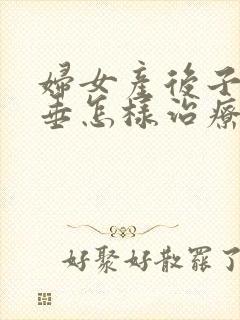 婦女產後子
垂怎樣治療
好聚好散罷了